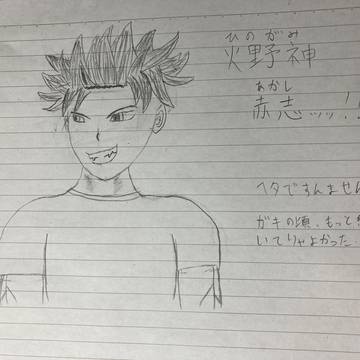 ひのがみ
火野神
あかし
赤志ッッ!!
ヘタですんません
ガキの頃、もっと
いてりゃよかった